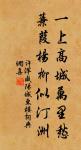 一上高城萬里愁
蒹葭楊柳似汀洲
許渾咸陽城東樓詞典
網喜